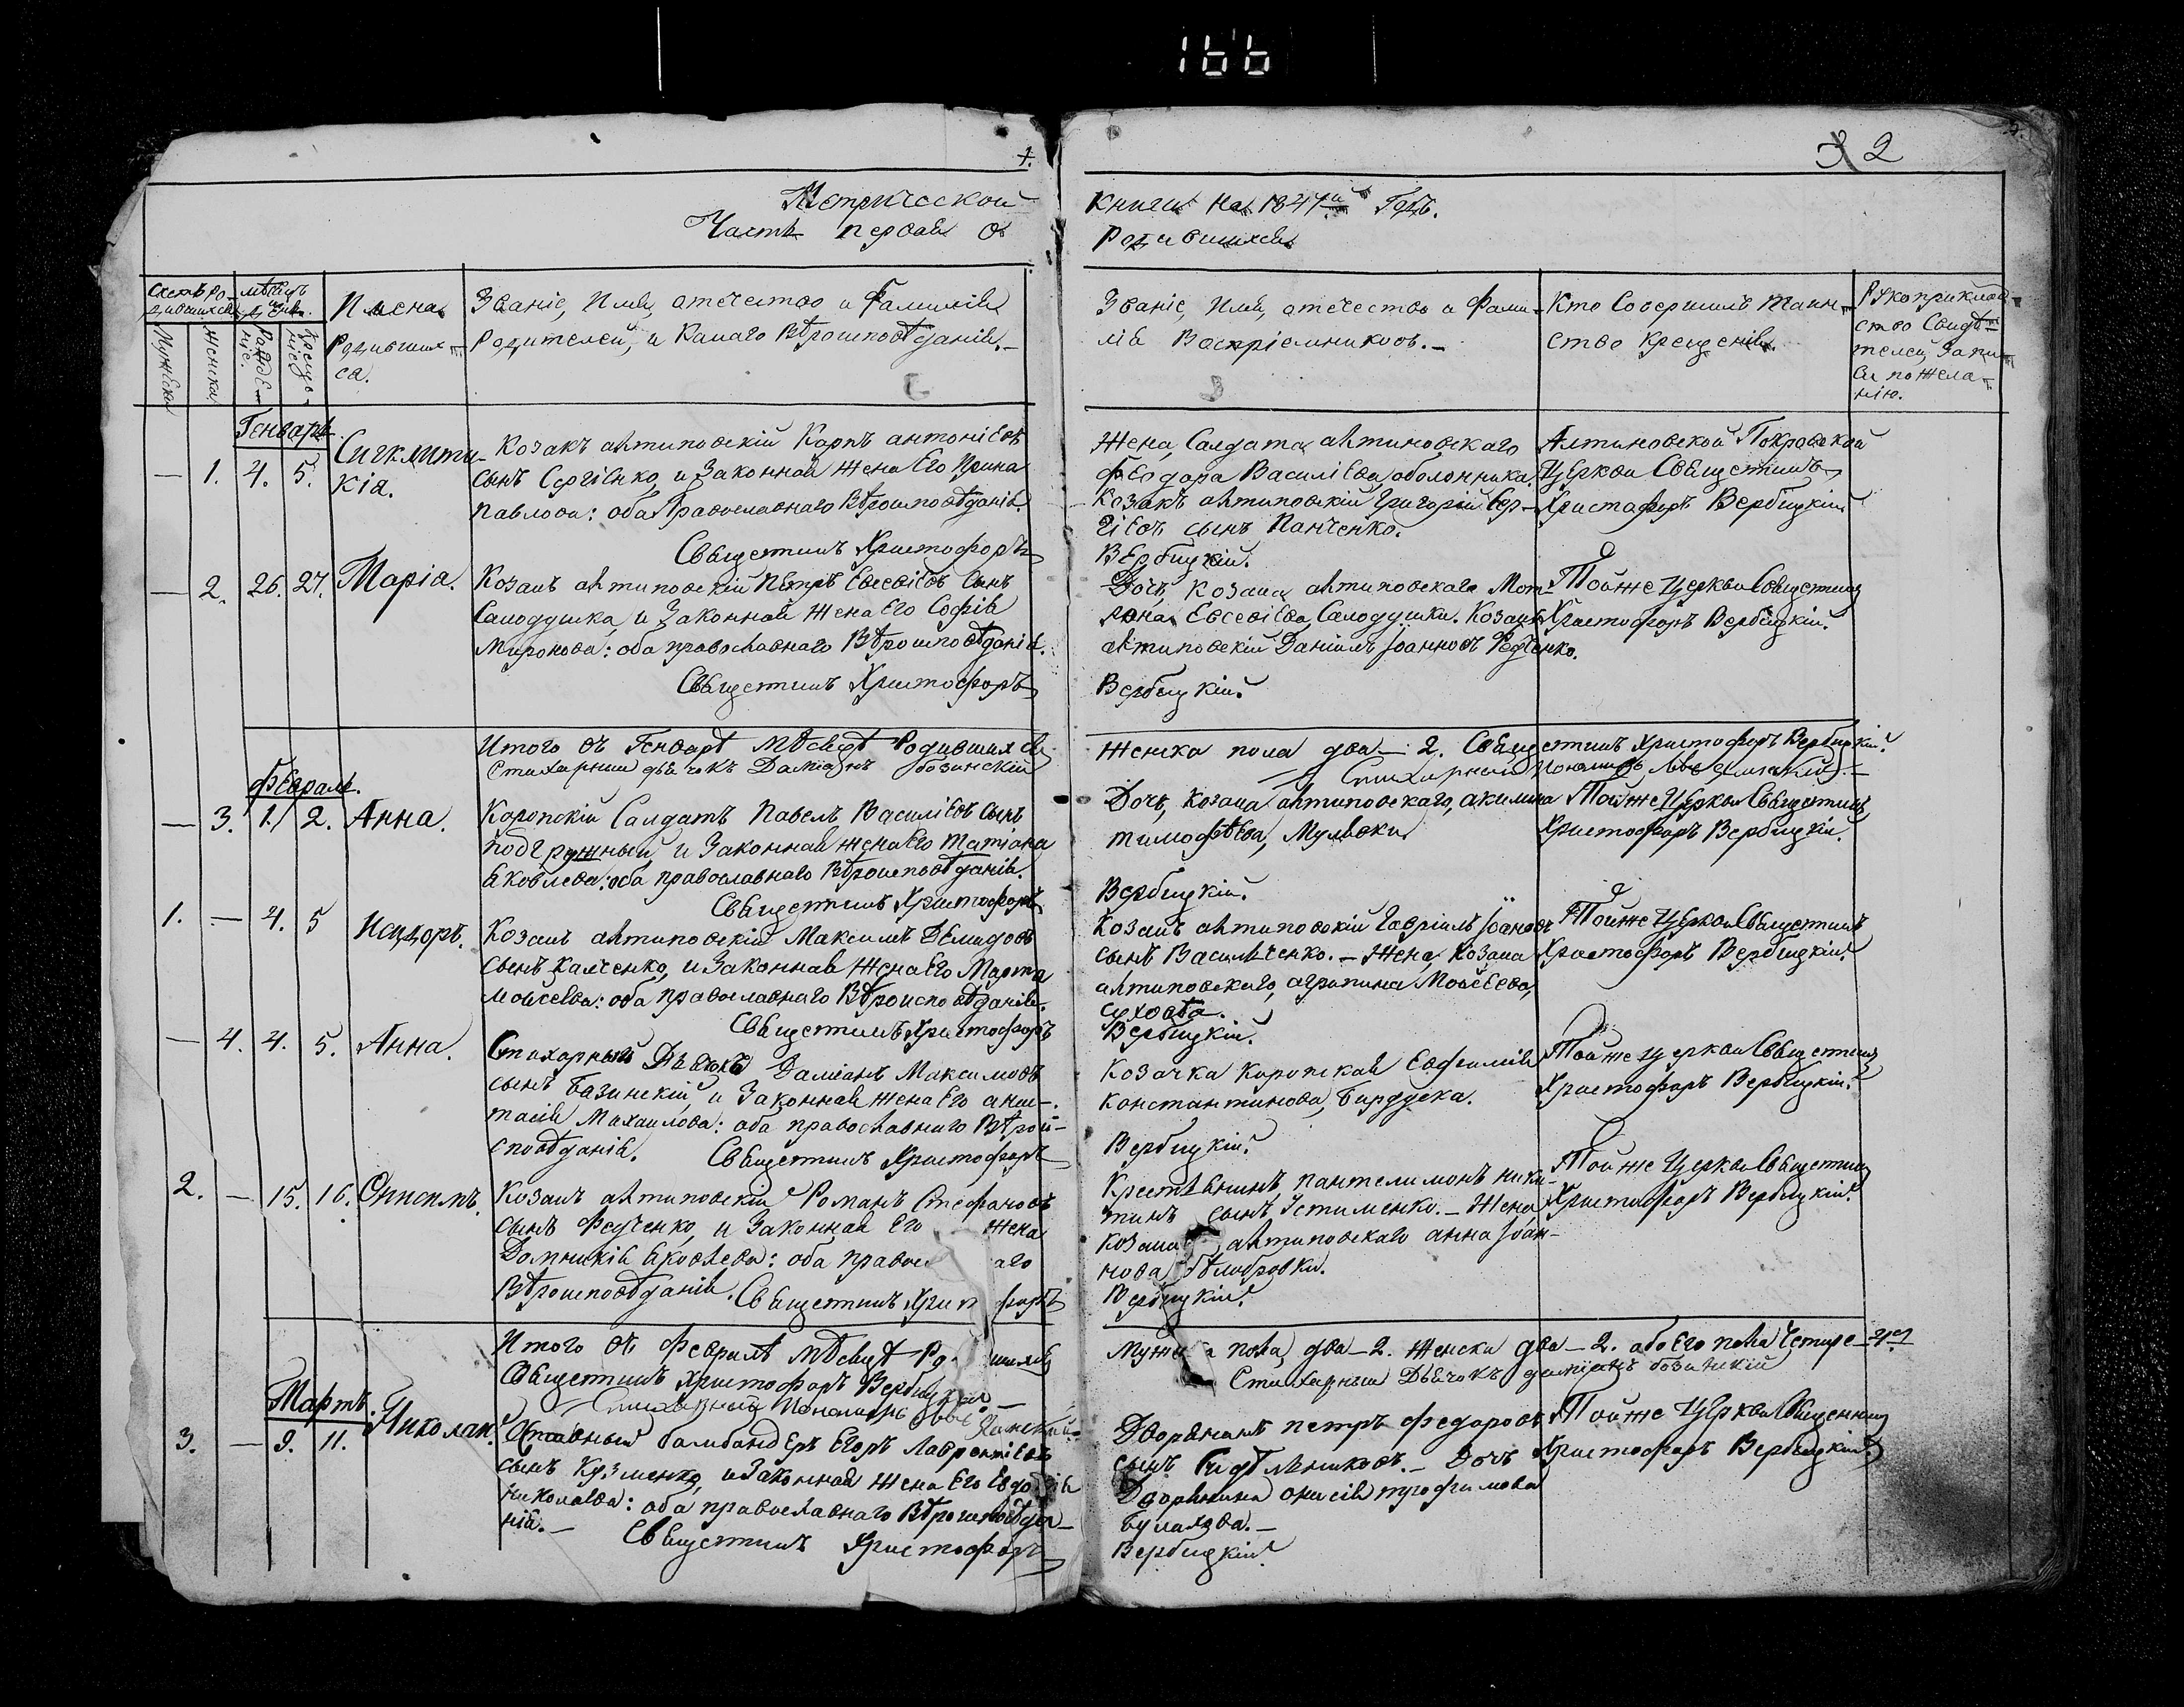 166
1.
3 2
Метрической
Часть первая о
книги на 1847й Годъ.
Родившихся
Счетъ ро-
дившихся
мѣсяцъ
и день.
Имена
Родивших-
ся.
Званіе, Имя, отечество и Фамилія
Родителей, и Какаго Вѣроисповѣданія.-
Мужеска
Женска
Рожде-
ніе.
Креще-
ніе.
Званіе, Имя, отечество и Фами-
лія Воспріемниковъ.-
Кто Совершилъ Таин-
ство Крещенія.
Рукоприклад-
ство Свидѣ-
телей Запи-
си по Жела-
нію.
Генварь
— 1. 4. 5. Сигклити-
кія.
Козакъ алтиновскій Карпъ антоніевъ
сынъ Сергіенко, и Законная Жена Его Ирина
Павлова: оба Православнаго Вѣроисповѣданія.
Священникъ Христофоръ
Жена Салдата алтиновскаго
Феодора Василіева оболонника.
Козакъ алтиновскій Григорій Сер-
гіевъ сынъ Панченко.
Вербицкій.
Алтиновской Покровской
Церкви Священникъ
Христофоръ Вербицкій
— 2. 26. 27. Марія.
Козакъ алтиновскій Петръ Евсевіевъ Сынъ
Салодушка, и Законная Жена Его Софія
Миронова: оба православнаго Вѣроисповѣданія.
Священникъ Христофоръ
Дочь Козака алтиновскаго Мат-
рона Евсевіева, Салодушки. Козакъ
алтиновскій Даніилъ Іоанновъ Федченко.
Вербицкій.
Тойже Церкви Священникъ
Христофоръ Вербицкій.
Итого въ Генварѣ мѣсяцѣ Родившихся
Стихарный дьячокъ Даміанъ базинскій
Женска пола два — 2. Священникъ Христофоръ Вербицкій.
Стихарный Пономарь
Февраль.
— 3. 1. 2. Анна.
Коропскій Салдатъ Павелъ Василіевъ Сынъ
Подгружный, и Законная Жена Его Татіана
Яковлева: оба православнаго Вѣроисповѣданія.
Священникъ Христофоръ
Дочь Козака алтиновскаго, акилина
тимофѣева, Мулявки
Вербицкій.
Тойже Церкви Священникъ
Христофоръ Вербицкій.
1. — 4. 5 Исидоръ.
Козакъ алтиновскій Максимъ Демидовъ
сынъ Калченко, и Законная Жена Его Марта
Мойсеева: оба православнаго Вѣроисповѣданія.
Священникъ Христофоръ
Козакъ алтиновскій Гавріилъ Іоановъ
сынъ Васильченко. — Жена Козака
алтиновскаго, агрипина Мойсеева,
Вербицкій.
Тойже Церкви Священникъ
Христофоръ Вербицкій.
— 4. 4. 5. Анна.
Стихарный Дьячокъ Даміанъ Максимовъ
сынъ Базинскій, и Законная Жена Его анас-
тасія Михаилова: оба православнаго Вѣрои-
сповѣданія. Священникъ Христофоръ
Козачка Коропская Евфимія
Константинова, Бардуска.
Вербицкій.
Тойже Церкви Священникъ
Христофоръ Вербицкій.
2. — 15. 16. Онисимъ.
Козакъ алтиновскій Романъ Стефановъ
сынъ Федченко, и Законная Его Жена
Домникія Яковлева: оба правос аго
Вѣроисповѣданія. Священникъ Хри форъ
Крестьянинъ пантелимонъ ники-
тинъ сынъ Устименко. — Жена
Козака алтиновскаго анна Іоан-
нова бѣлобровки.
Вербицкій.
Тойже Церкви Священникъ
Христофоръ Вербицкій.
Итого въ Февралѣ мѣсяцѣ Ро шихся
Священникъ Христофоръ Вербицкій
Стихарный Пономарь
Муже а пола два — 2. Женска два — 2. обоего пола Четыре — 4.
Стихарный Дьячокъ даміанъ базинскій
Мартъ.
3. — 9. 11. Николай.
Отставный бамбандеръ Егоръ Лаврентіевъ
сынъ Кузменко, и Законная Жена Его Евдо ія
Николаева: оба православнаго Вѣроисповѣда-
нія.— Священникъ Христофоръ
Дворянинъ петръ Федоровъ
сынъ Сидѣльниковъ. — Дочь
Дворянина онисія трофимова
Булахова.—
Вербицкій
Тойже Церкви Священникъ
Христофоръ Вербицкій